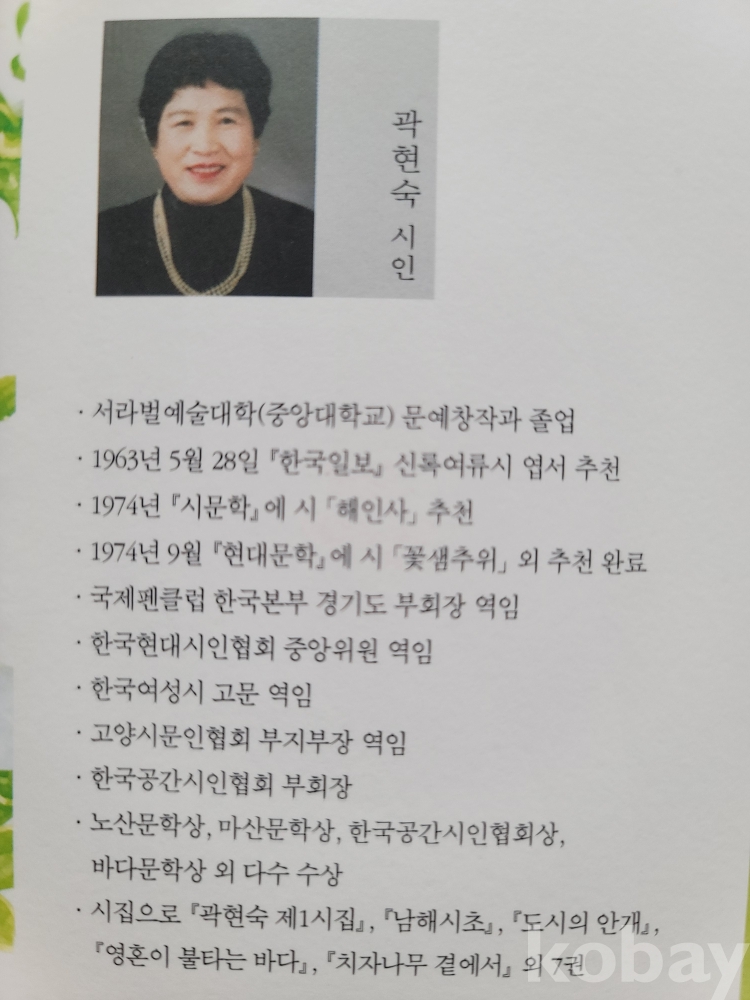 곽현숙 시인
· 서라벌예술대학(중앙대학교) 문예창작과 졸업
· 1963년 5월 28일 『한국일보』 신록여류시 엽서 추천
· 1974년 『시문학』에 시 「해인사」 추천
· 1974년 9월 『현대문학』에 시 「꽃샘추위」 외 추천 완료
· 국제펜클럽 한국본부 경기도 부회장 역임
· 한국현대시인협회 중앙위원 역임
· 한국여성시 고문 역임
· 고양시문인협회 부지부장 역임
· 한국공간시인협회 부회장
· 노산문학상, 마산문학상, 한국공간시인협회상,
바다문학상 외 다수 수상
· 시집으로 『곽현숙 제1시집』, 『남해시초』, 『도시의 안개』,
『영혼이 불타는 바다』, 『치자나무 곁에서』 외 7권
kobay